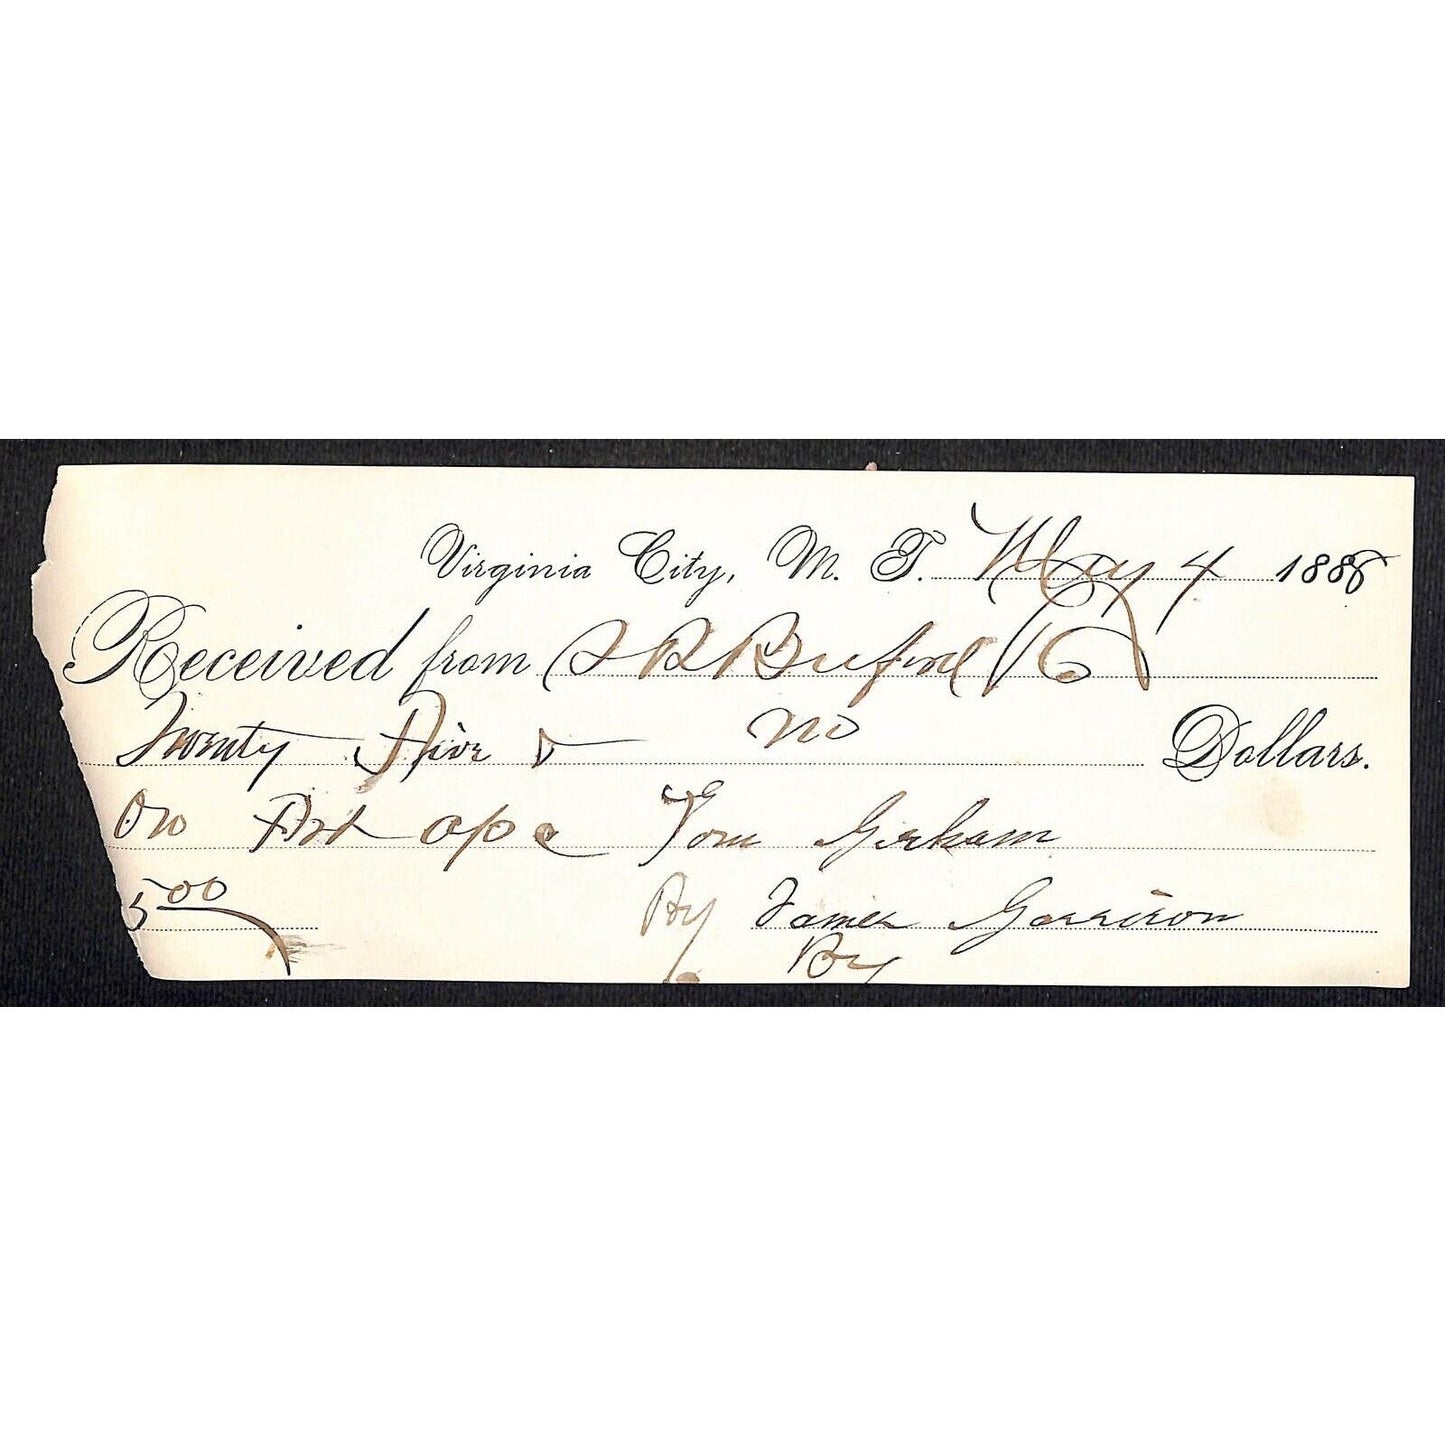 Virginia City, M. T. May 4 1886
Received from S R Buford & Co
Twenty Five & no Dollars.
On Act ope Tom Gerham
5 00 By James Garrison
By